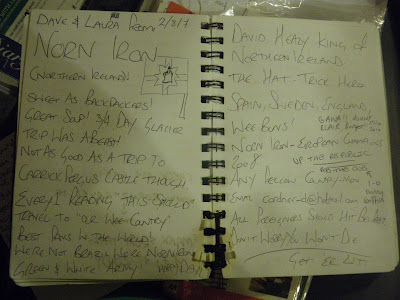 DAVE & LAURA FROM 2/3/7
NORN IRON
(NORTHERN IRELAND)
SWEET AS BACKPACKERS!
GREAT SOUP! 3/4 DAY GLACIER
TRIP WAS A BEAST!
NOT AS GOOD AS A TRIP TO
CARRICKFERGUS CASTLE THOUGH
EVERY1 READING THIS SHOULD
TRAVEL TO "OUR WEE COUNTRY"
BEST FANS IN THE WORLD!
WE'RE NOT BRAZIL WE'RE NORN IRON
GREEN & WHITE ARMY!
DAVID HEALY KING OF
NORTHERN IRELAND
THE HAT-TRICK HERO
SPAIN, SWEDEN, ENGLAND,
WEE BUNS!
NORN IRON - EUROPEAN CHAMPIONS
2008
UP THE REPUBLIC
ANY FELLOW COUNTRYMEN
1-0
EMAIL
ALL FOREIGNERS SHOULD HIT BELFAST
DON'T WORRY YOU WON'T DIE
GET ER OUT